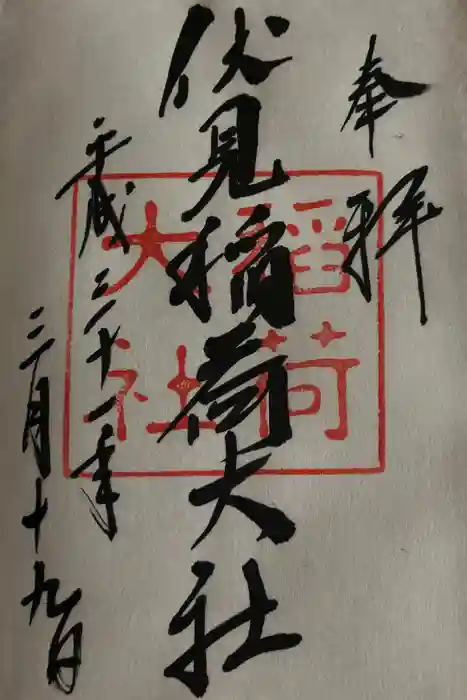 奉拝
伏見稲荷大社
稲荷
大社
平成三十一年
三月十九日